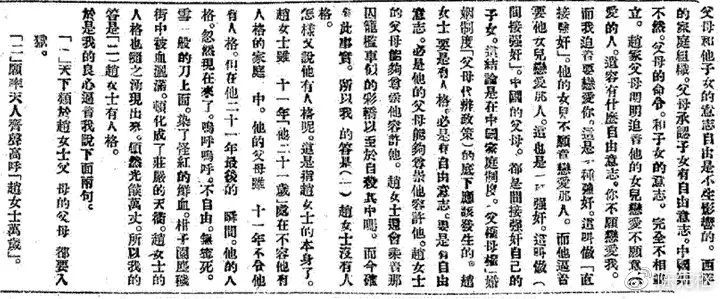 父母和他子女的意志自由是不生影響的。西洋
的家庭組織。父母承認子女有自由意志。中國則
不然。父母的命令。和子女的意志。完全不相並
立。趙家父母明明迫着他的女兒戀愛不願意戀
愛的人。這容有什麼自由意志。你不願戀愛我。
而我迫着要戀愛你。這是一種強奸。這叫做「直
接強奸」。他的女兒不願意戀愛那人。而他逼着
要他女兒戀愛那人。這也是一種強奸。這叫做「
間接強奸」。中國的父母。都是間接強奸自己的
子女。這結論是在中國家庭制度。「父權母權」婚
姻制度「父母代辦政策」的底下應該發生的。趙
女士要是有人格。必是有自由意志。要是有自由
意志。必是他的父母能夠尊崇他容許他。趙女士
的父母能夠尊崇他容許他。趙女士還會乘着那
囚籠檻車似的彩轎以至於自殺其中嗎。而今確
有此事實。所以我的答案(一)趙女士沒有人
格。
怎樣又說他有人格呢。這是指趙女士的本身了。
趙女士雖 十一年「他二十一歲」處在不容他有
人格的家庭 中。他的父母雖 十一年不令他
有人格。但在他二十一年最後的 瞬間。他的人
格。忽然現在來了。嗚呼嗚呼。不自由。無寧死。
雪一般的刀上面。染了怪紅的鮮血。柑子園塵穢
街中被血灑滿。頓化成了莊嚴的天衢。趙女士的
人格也隨之湧現出來。頓然光燄萬丈。所以我的
答是「二」趙女士有人格。
於是我的良心逼着我說下面兩句。
「一」天下類於趙女士父母的父母都要入
獄。
「二」願率天人齊聲高呼「趙女士萬歲」。